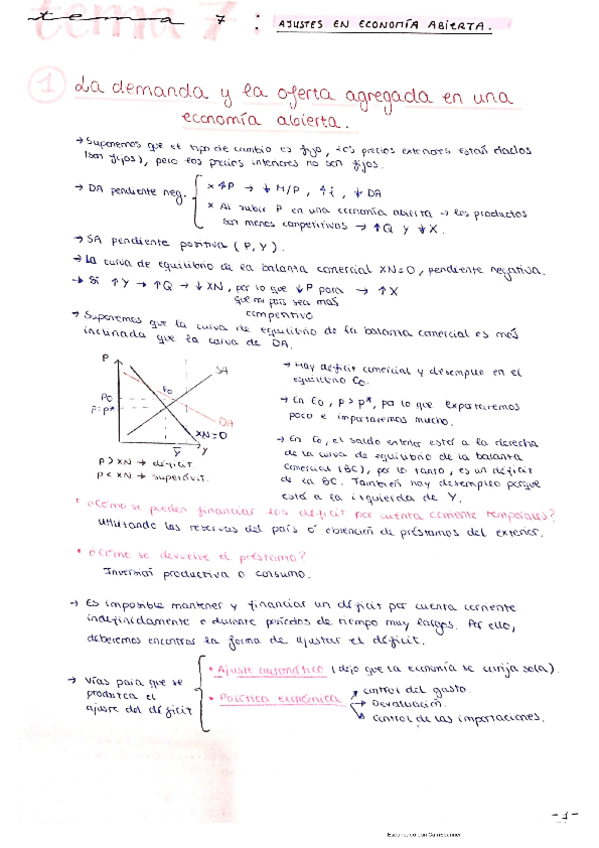 tema 7 : AJUSTES EN ECONOMÍA ABIERTA.
1 La demanda y la oferta agregada en una
economía abierta.
→ Suponemos que el tipo de cambio es fijo, los precios exteriores están dados
(son fijos), pero los precios interiores no son fijos.
→ DA pendiente neg.
× ↑P → ↓ M/P, ↑i, ↓ DA
× Al subir P en una economía abierta → los productos
son menos competitivos → ↑Q y ↓X.
→ SA pendiente positiva (P, Y).
→ La curva de equilibrio de la balanta comercial XN=0, pendiente negativa.
→ Si ↑Y → ↑Q → ↓XN, por lo que ↓P para → ↑X
que mi país sea más
competitivo
→ Suponemos que la curva de equilibrio de la balanta comercial es más
inclinada que la curva de DA.
P
SA
E0
P0
P=P*
DA
XN=0
Y
Y
P > XN → déficit
P < XN → superávit.
→ Hay déficit comercial y desempleo en el
equilibrio E0.
→ En E0, P > P*, por lo que exportaremos
poco e importaremos mucho.
→ En E0, el saldo exterior está a la derecha
de la curva de equilibrio de la balanta
comercial (BC), por lo tanto, es un déficit
de la BC. También hay desempleo porque
está a la izquierda de Y.
* ¿Cómo se pueden financiar los déficit por cuenta corriente temporales?
Utilizando las reservas del país ó obtención de préstamos del exterior.
* ¿Cómo se devuelve el préstamo?
Inversión productiva o consumo.
→ Es imposible mantener y financiar un déficit por cuenta corriente
indefinidamente o durante períodos de tiempo muy largos. Por ello,
deberemos encontrar la forma de ajustar el déficit.
→ Vías para que se
produzca el
ajuste del déficit
• Ajuste automático (dejo que la economía se corrija sola).
• Política económica
→ control del gasto.
→ Devaluación.
→ control de las importaciones.
-1-
Escaneado con CamScanner